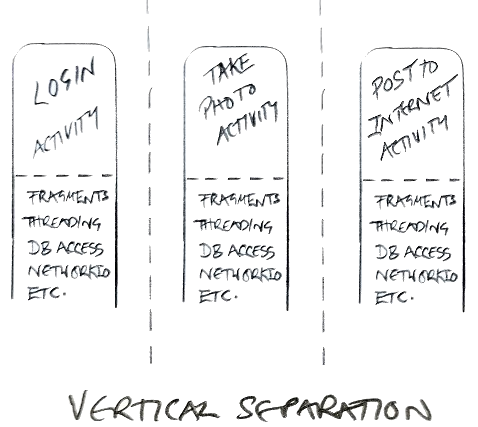 LOGIN
ACTIVITY
FRAGMENTS
THREADING
DB ACCESS
NETWORKIO
ETC.
TAKE
PHOTO
ACTIVITY
FRAGMENTS
THREADING
DB ACCESS
NETWORKIO
ETC.
POST TO
INTERNET
ACTIVITY
FRAGMENTS
THREADING
DB ACCESS
NETWORKIO
ETC.
VERTICAL SEPARATION